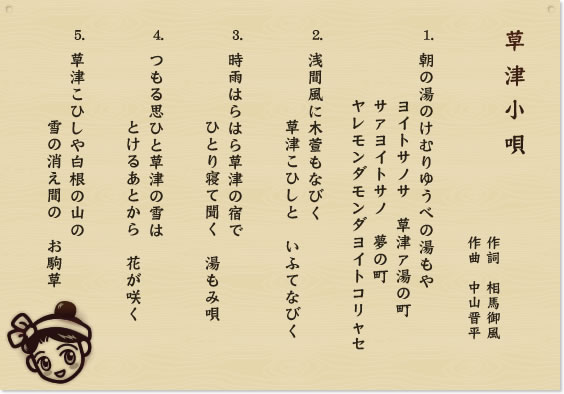 草津小唄
作詞 相馬御風
作曲 中山晋平
1. 朝の湯のけむりゆうべの湯もや
ヨイトサノサ 草津ァ湯の町
サァヨイトサノ 夢の町
ヤレモンダモンダヨイトコリャセ
2. 浅間風に木萱もなびく
草津こひしと いふてなびく
3. 時雨はらはら草津の宿で
ひとり寝て聞く 湯もみ唄
4. つもる思ひと草津の雪は
とけるあとから 花が咲く
5. 草津こひしや白根の山の
雪の消え間の お駒草